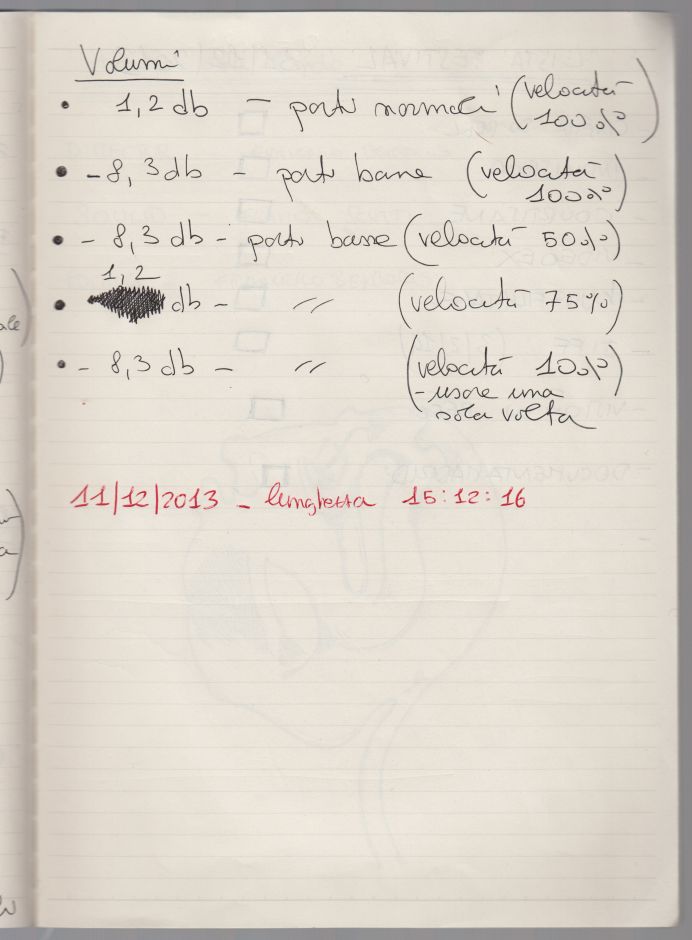 Volumi
• 1,2 db – parti normali (velocità
100%)
• - 8,3 db - parti basse (velocità
100%)
• - 8,3 db - parti basse (velocità 50%)
1,2
• db - 〃 (velocità 75%)
• - 8,3 db - 〃 (velocità 100%)
- usare una
sola volta
11/12/2013 - lunghezza 15:12:16